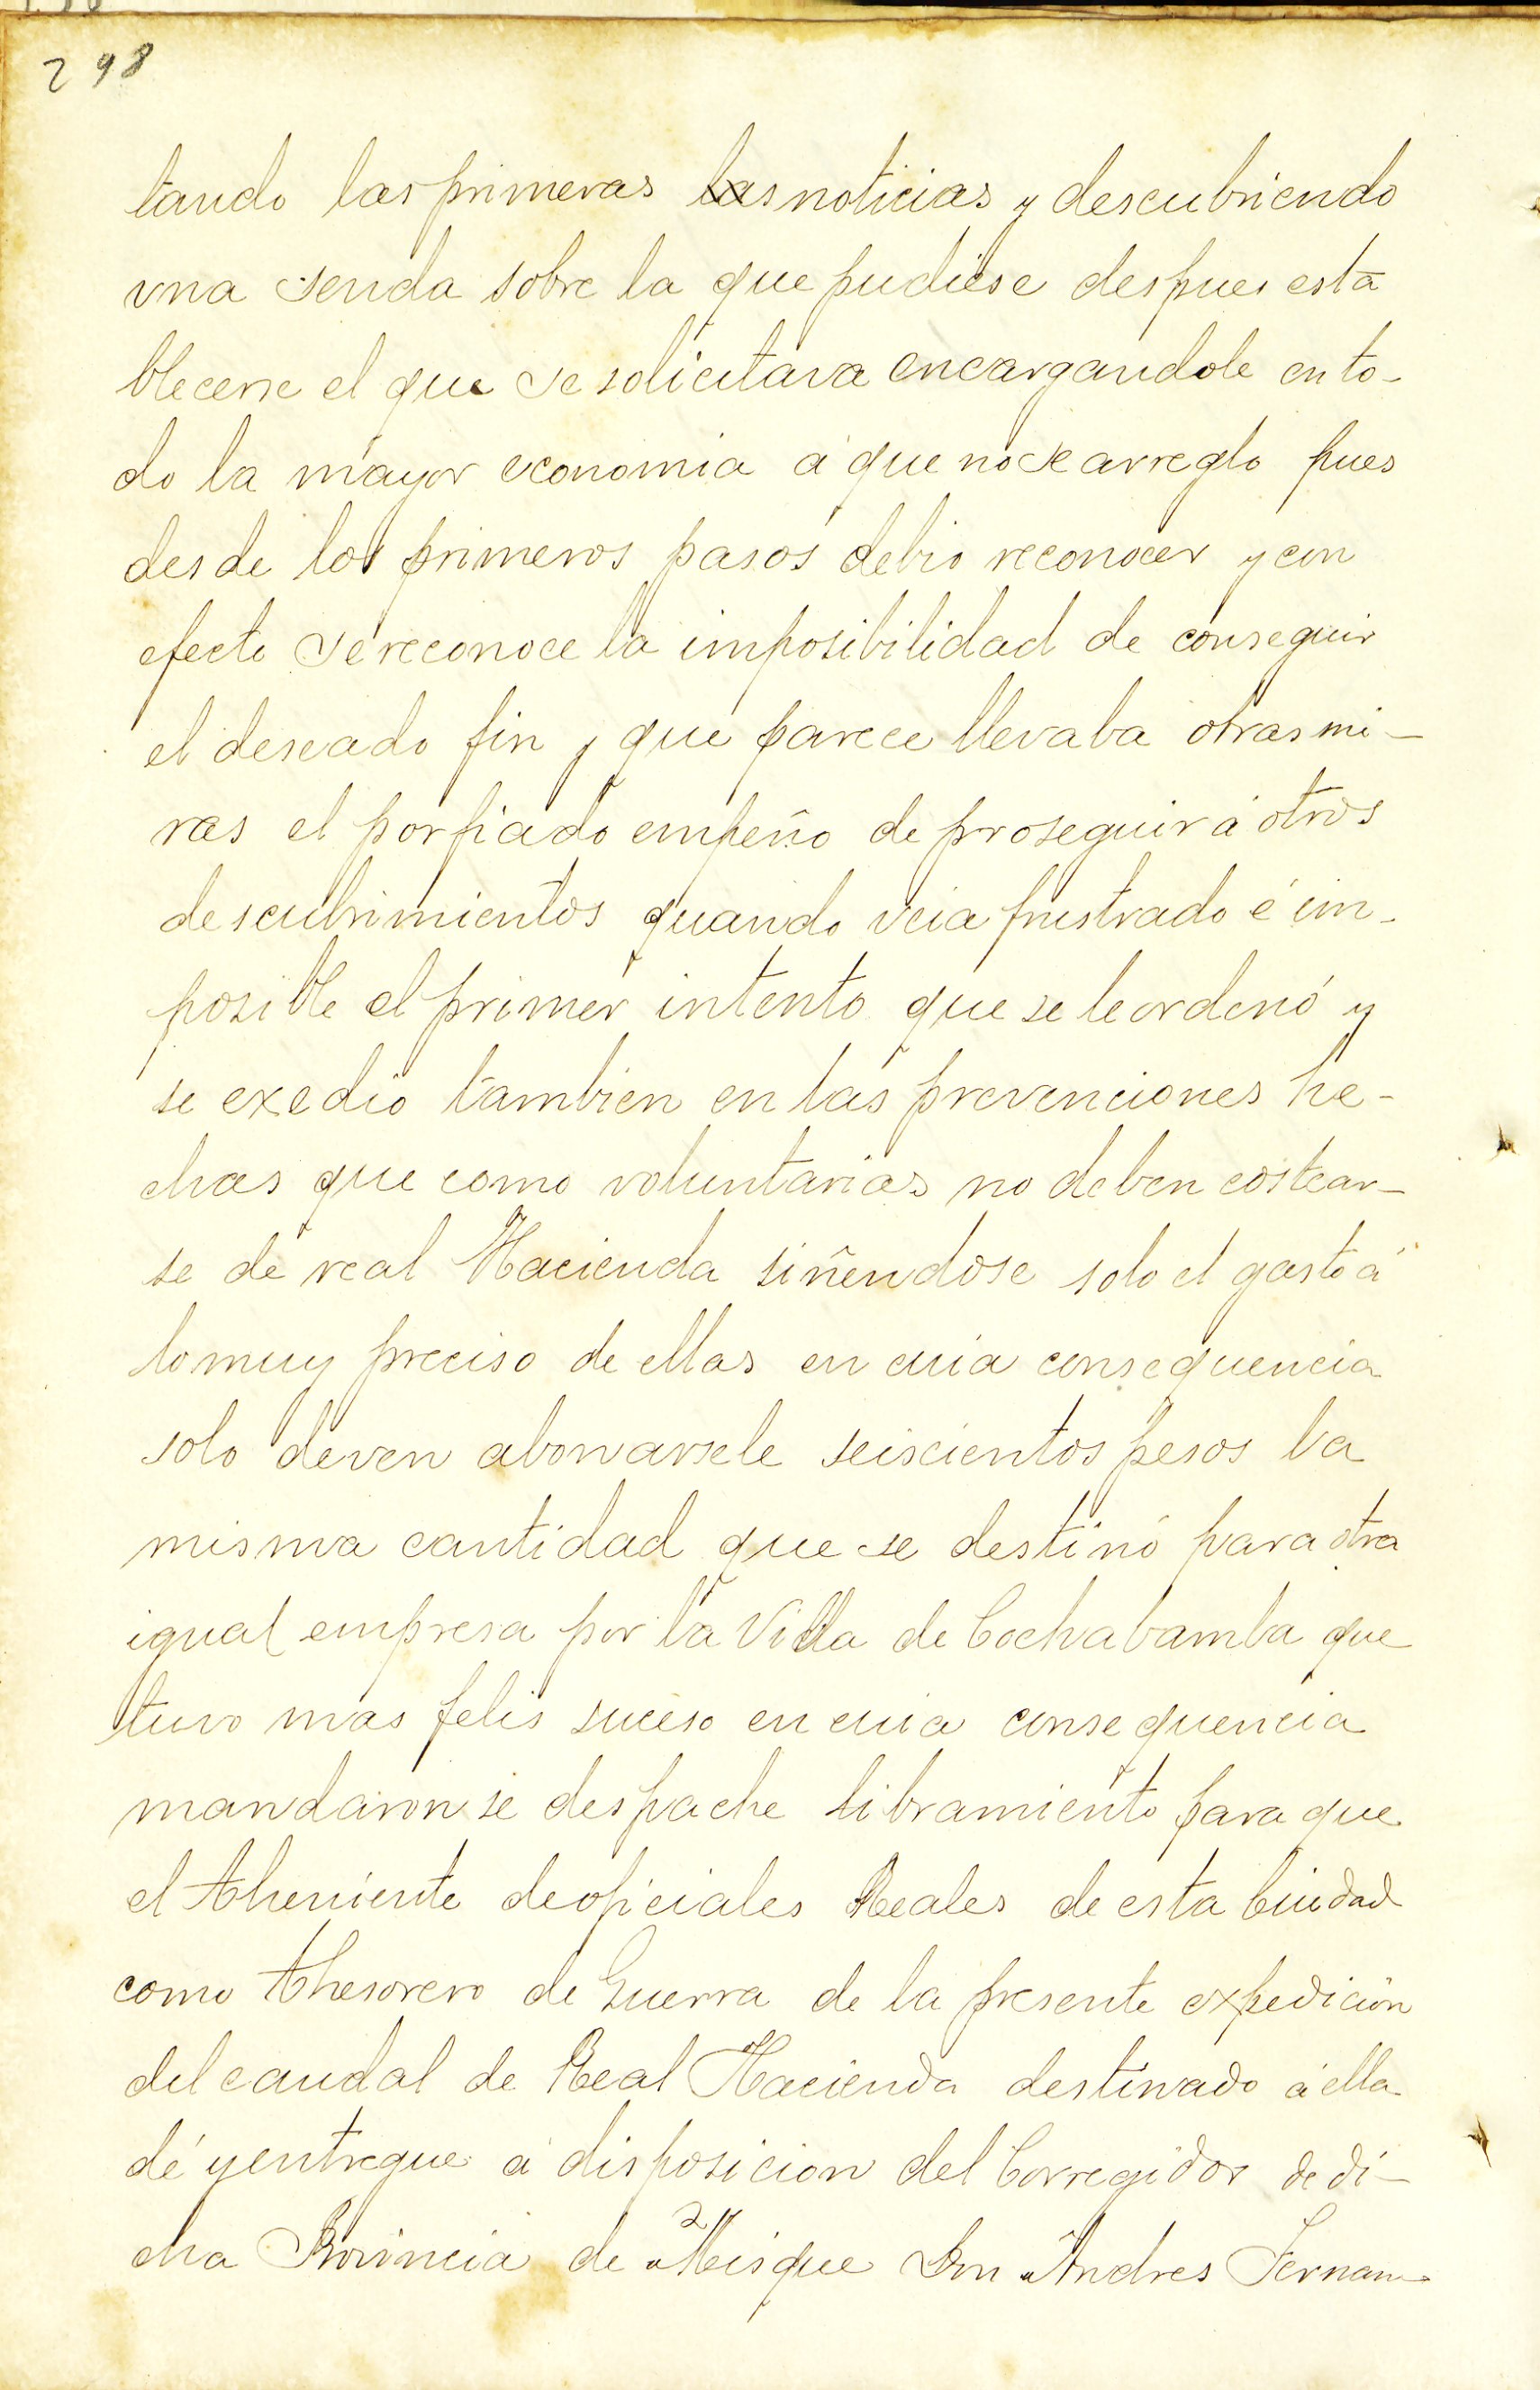 298
tando las primeras las noticias y descubriendo
vna senda sobre la que pudiese despues esta
blecerse el que se solicitava encargandole en to-
do la mayor economia á que no se arreglo pues
desde los primeros pasos debio reconocer y con
efecto se reconoce la imposibilidad de conseguir
el deseado fin y que parece llevaba otras mi-
ras el porfiado empeño de proseguir á otros
descubrimientos quando veia frustrado é im-
posible el primer intento que se le ordenó y
se exedio tambien en las prevenciones he-
chas que como voluntarias no deben costear-
se de real Hacienda siñendose solo el gasto á
lo muy preciso de ellas en cuia consequencia
solo deven abonarsele seiscientos pesos la
misma cantidad que se destinó para otra
igual empresa por la Villa de Cochabamba que
tuvo mas felis suceso en cuia consequencia
mandaron se despache libramiento para que
el Theniente de oficiales Reales de esta Ciudad
como Thesorero de Guerra de la presente expedición
del caudal de Real Hacienda destinado á ella
dé y entregue á disposicion del Corregidor de di-
cha Provincia de Misque Don Andres Fernan-